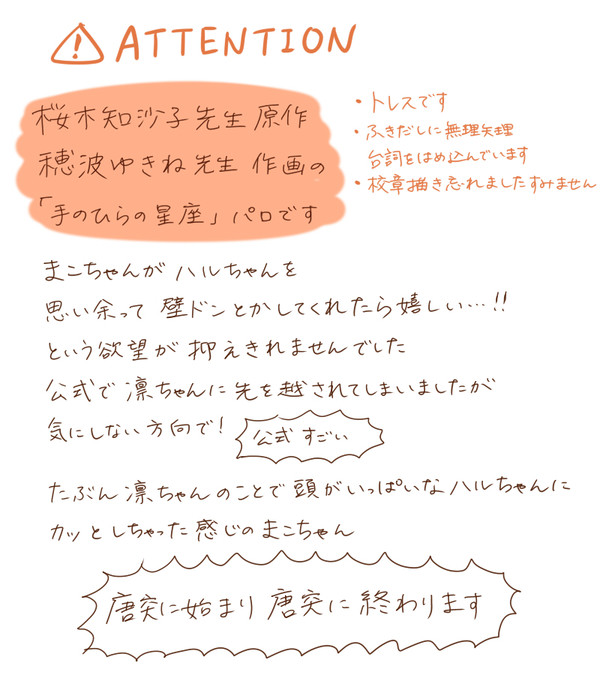 ATTENTION
桜木知沙子先生 原作
穂波ゆきね先生 作画の
「手のひらの星座」パロです
・トレスです
・ふきだしに無理矢理
台詞をはめ込んでいます
・校章描き忘れましたすみません
まこちゃんが ハルちゃんを
思い余って 壁ドンとかしてくれたら嬉しい…!!
という欲望が 抑えきれませんでした
公式で 凛ちゃんに 先を越されてしまいましたが
気にしない方向で!
公式 すごい
たぶん 凛ちゃんのことで 頭がいっぱいな ハルちゃんに
カッとしちゃった 感じの まこちゃん
唐突に始まり 唐突に 終わります